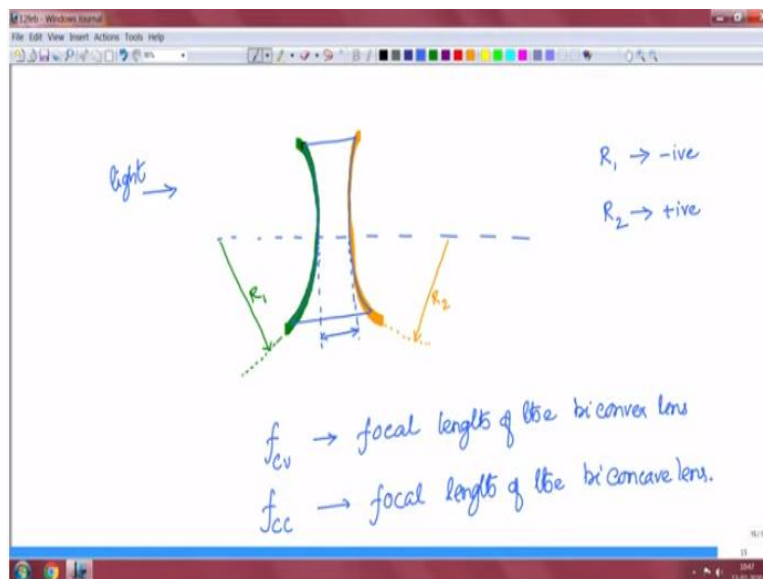 12feb - Windows Journal
File Edit View Insert Actions Tools Help
light
R1 → -ive
R2 → +ive
R1
R2
fcv → focal length of the biconvex lens
fcc → focal length of the biconcave lens.
15